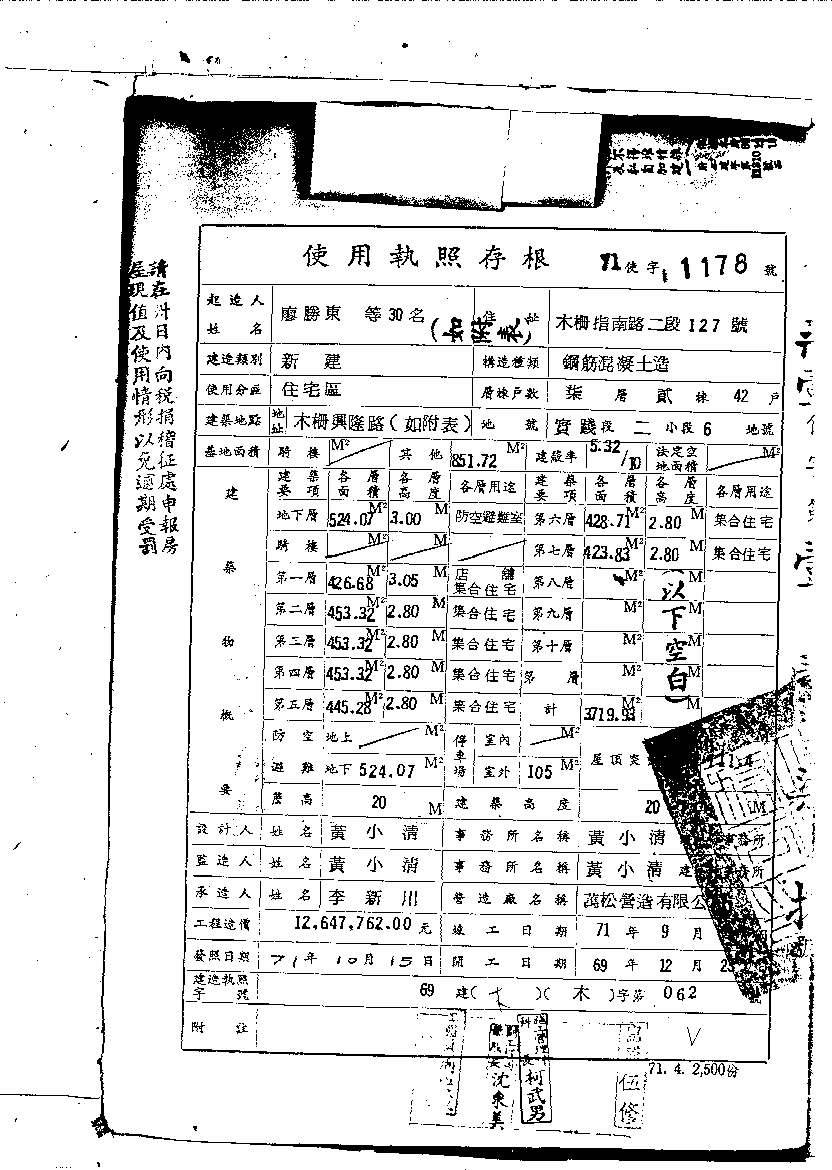 使用執照存根 71使字 1178 號
起造人姓名 廖勝東 等30名 (如附表) 住址 木柵指南路二段127號
建造類別 新建 構造種類 鋼筋混凝土造
使用分區 住宅區 層棟戶數 柒層貳棟42戶
建築地點 地址 木柵興隆路(如附表) 地號 實踐段二小段6地號
基地面積 騎樓 M² 其他 851.72 M² 建蔽率 5.32/10 法定空地面積 M²
建築物概要
建築要項 各層面積 各層高度 各層用途 建築要項 各層面積 各層高度 各層用途
地下層 524.07 M² 3.00 M 防空避難室 第六層 428.71 M² 2.80 M 集合住宅
騎樓 M² M 第七層 423.83 M² 2.80 M 集合住宅
第一層 426.68 M² 3.05 M 店舖 集合住宅 第八層 M² M
第二層 453.32 M² 2.80 M 集合住宅 第九層 M² M
第三層 453.32 M² 2.80 M 集合住宅 第十層 M² M
第四層 453.32 M² 2.80 M 集合住宅 第 層 M² M
第五層 445.28 M² 2.80 M 集合住宅 計 3719.93 M² M
(以下空白)
防空避難 地上 M² 停車場 室內 M²
地下 524.07 M² 室外 105 M² 屋頂突
簷高 20 M 建築高度 20 M
設計人 姓名 黃小清 事務所名稱 黃小清 事務所
監造人 姓名 黃小清 事務所名稱 黃小清建 事務所
承造人 姓名 李新川 營造廠名稱 茂松營造有限公
工程造價 12,647,762.00元 竣工日期 71年9月
發照日期 71年10月15日 開工日期 69年12月
建造執照字號 69建( )(木)字第062
附註 V
71.4.2,500份
科長柯武男
沈東美
伍修
請在 計日內向稅捐稽征處申報房
屋現值及使用情形以免逾期受罰